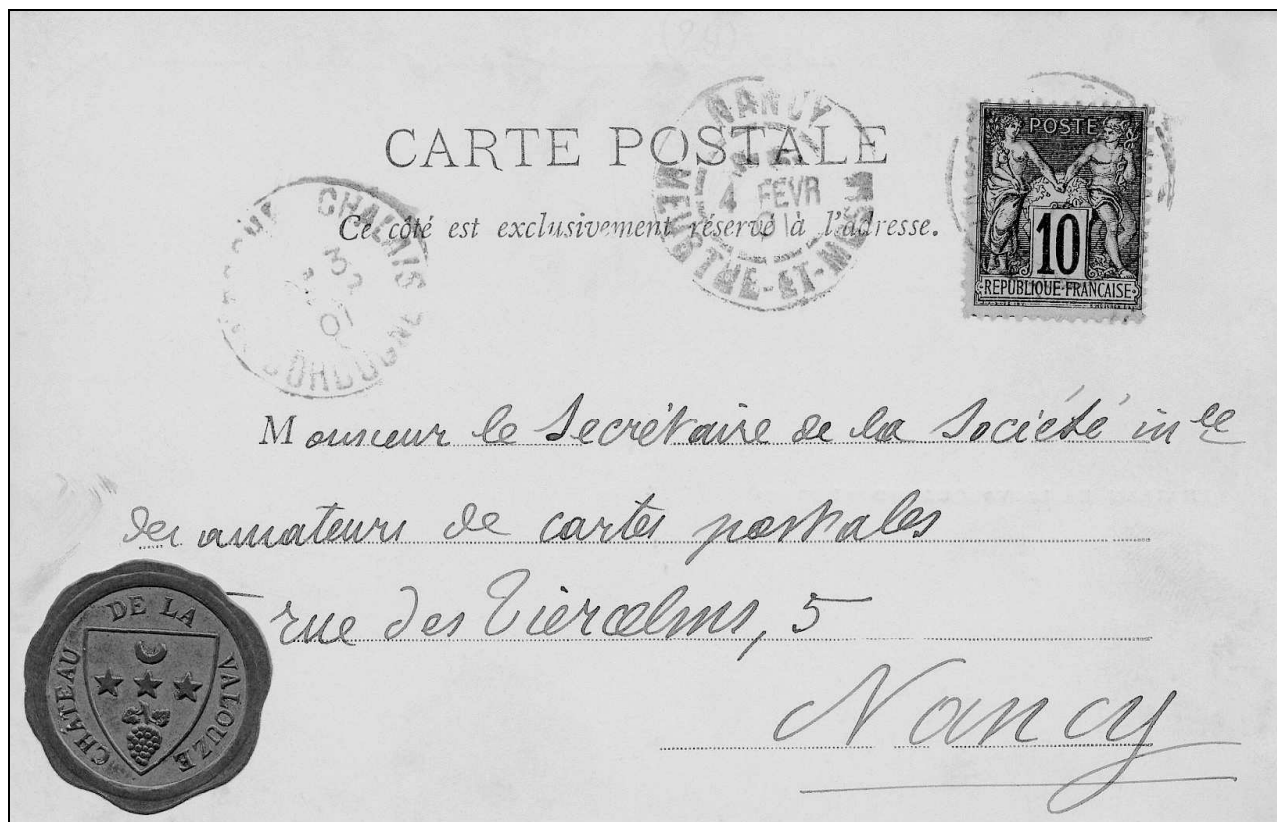 CARTE POSTALE
Ce côté est exclusivement réservé à l'adresse.
NANCY
4 FEVR
01
MEURTHE-ET-MELLE
CHALAIS
3
01
DORDOGNE
POSTE
10
REPUBLIQUE FRANCAISE
Monsieur le Secrétaire de la Société inle
des amateurs de cartes postales
rue des Tiercelins, 5
Nancy
CHÂTEAU DE LA VALOUZE